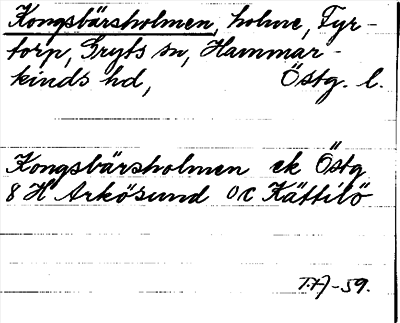 Kongsbärsholmen, holme, Fyr-
torp, Gryts sn, Hammar-
kinds hd, Östg. l.
Kongsbärsholmen ek Östg
8 H Arkösund OC Kättilö
T.H-59.